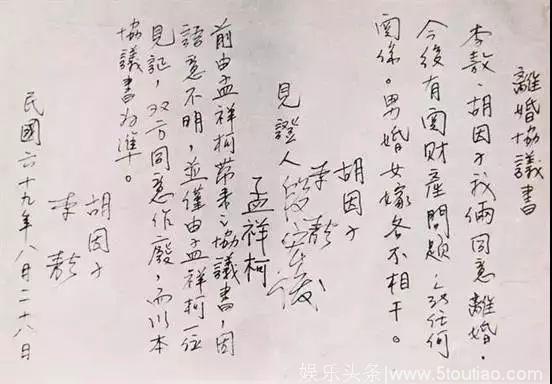 離婚協議書
李敖、胡因子我倆同意離婚。
今後有関財產問題,無任何
関係。男婚女嫁各不相干。
胡因子
李敖
見證人
孟祥柯
前由孟祥柯帶来之協議書,因
語意不明,並僅由孟祥柯一位
見証,双方同意作廢,而以本
協議書為準。
胡因子
李敖
民國六十九年八月二十八日
娱乐头条/www.5toutiao.com